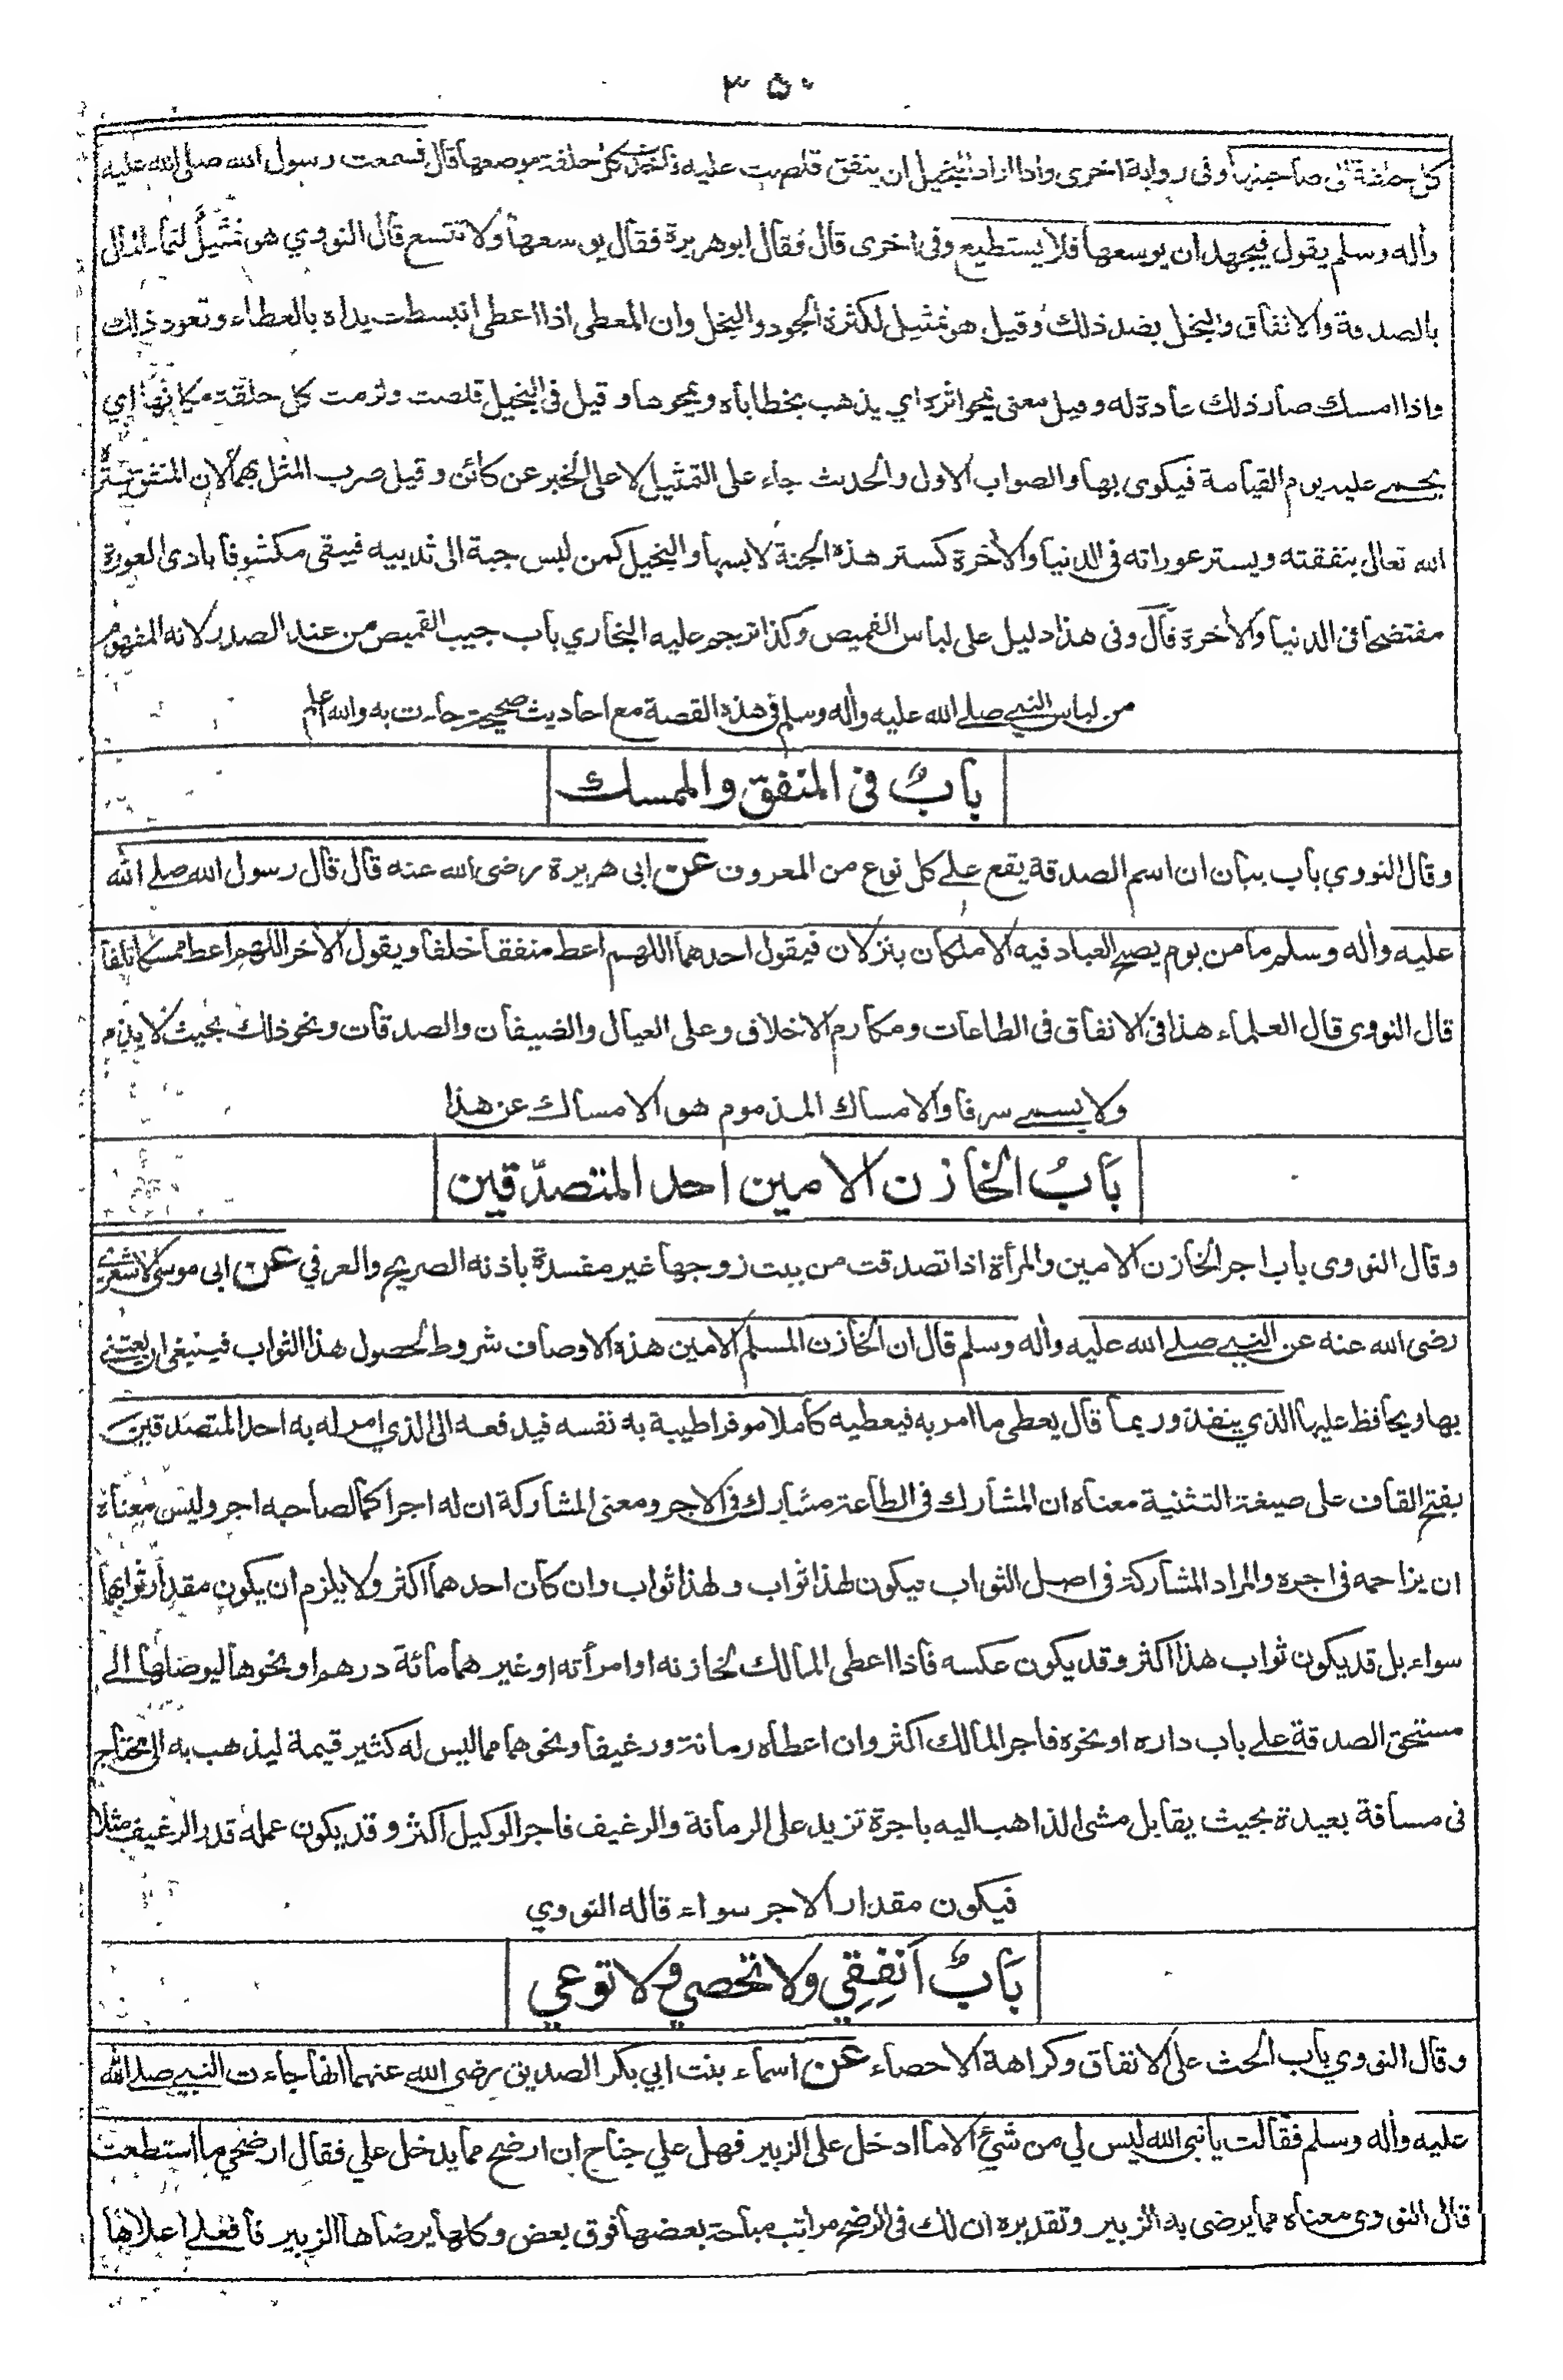 ٣٥٠
كل حلقة الى صاحبتها وفى رواية اخرى واذا اراد البخيل ان ينفق قلصت عليه واخذت كل حلقة موضعها قال فسمعت رسول الله صلى الله عليه
واٰله وسلم يقول فيجهد ان يوسعها فلا يستطيع وفى اخرى قال فقال ابو هريرة فقال يوسعها ولا تتسع قال النووي هو تمثيل لنماء المال
بالصدقة والانفاق والبخل بضد ذلك وقيل هو تمثيل لكثرة الجود والبخل وان المعطى اذا اعطى انبسطت يداه بالعطاء وتعود ذلك
واذا امسك صار ذلك عادة له وقيل معنى يمحو اثره اي يذهب بخطاياه ويمحوها وقيل فى البخيل قلصت ولزمت كل حلقة مكانها اي
يحمى عليه يوم القيامة فيكوى بها والصواب الاول والحديث جاء على التمثيل لا على الخبر عن كائن وقيل ضرب المثل بهما لان المنفق يستره
الله تعالى بنفقته ويستر عوراته فى الدنيا والاٰخرة كستر هذه الجنة لابسها والبخيل كمن لبس جبة الى ثدييه فيبقى مكشوفا بادى العورة
مفتضحا فى الدنيا والاٰخرة قال وفى هذا دليل على لباس القميص وكذا ترجم عليه البخاري باب جيب القميص من عند الصدر لانه المفهوم
من لباس النبي صلى الله عليه واٰله وسلم فى هذه القصة مع احاديث صحيحة جاءت به والله اعلم
بابٌ فى المنفق والممسك
وقال النووي باب بيان ان اسم الصدقة يقع على كل نوع من المعروف عن ابى هريرة رضى الله عنه قال قال رسول الله صلى الله
عليه واٰله وسلم ما من يوم يصبح العباد فيه الا ملكان ينزلان فيقول احدهما اللهم اعط منفقا خلفا ويقول الاٰخر اللهم اعط ممسكا تلفا
قال النووى قال العلماء هذا فى الانفاق فى الطاعات ومكارم الاخلاق وعلى العيال والضيفان والصدقات ونحو ذلك بحيث لا يذم
ولا يسمى سرفا والامساك المذموم هو الامساك عن هذا
بَابُ الخازن الامين احد المتصدّقين
وقال النووى باب اجر الخازن الامين والمرأة اذا تصدقت من بيت زوجها غير مفسدة باذنه الصريح والعرفي عن ابى موسى الاشعري
رضى الله عنه عن النبي صلى الله عليه واٰله وسلم قال ان الخازن المسلم الامين هذه الاوصاف شروط لحصول هذا الثواب فينبغى ان يعتنى
بها ويحافظ عليها الذي ينفذ وربما قال يعطى ما امر به فيعطيه كاملا موفرا طيبة به نفسه فيدفعه الى الذي امر له به احد المتصدقين
بفتح القاف على صيغة التثنية معناه ان المشارك فى الطاعة مشارك فى الاجر ومعنى المشاركة ان له اجرا كما لصاحبه اجر وليس معناه
ان يزاحمه فى اجره والمراد المشاركة فى اصل الثواب فيكون لهذا ثواب ولهذا ثواب وان كان احدهما اكثر ولا يلزم ان يكون مقدار ثوابهما
سواء بل قد يكون ثواب هذا اكثر وقد يكون عكسه فاذا اعطى المالك لخازنه او امرأته او غيرهما مائة درهم او نحوها ليوصلها الى
مستحق الصدقة على باب داره او نحوه فاجر المالك اكثر وان اعطاه رمانة ورغيفا ونحوهما مما ليس له كثير قيمة ليذهب به الى محتاج
فى مسافة بعيدة بحيث يقابل مشى الذاهب اليه باجرة تزيد على الرمانة والرغيف فاجر الوكيل اكثر وقد يكون عمله قدر الرغيف مثلا
فيكون مقدار الاجر سواء قاله النووي
بَابٌ اَنفِقِي ولا تحصي ولا توعي
وقال النووي باب الحث على الانفاق وكراهة الاحصاء عن اسماء بنت ابي بكر الصديق رضى الله عنهما انها جاءت النبي صلى الله
عليه واٰله وسلم فقالت يا نبى الله ليس لي من شئ الا ما ادخل على الزبير فهل علي جناح ان ارضخ مما يدخل علي فقال ارضخي ما استطعت
قال النووى معناه مما يرضى به الزبير وتقديره ان لك فى الرضخ مراتب مباحة بعضها فوق بعض وكلها يرضاها الزبير فافعلى اعلاها